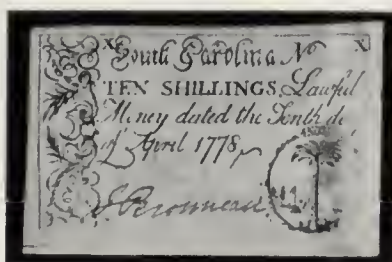 X South Carolina No X
TEN SHILLINGS, Lawful
Money dated the Tenth d
of April 1778,